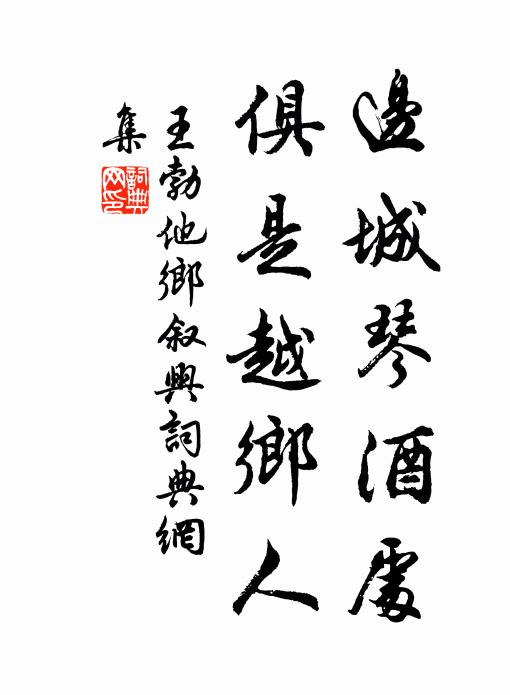 邊城琴酒處
俱是越鄉人
王勃他鄉叙興詞典網
集
詞典
网印